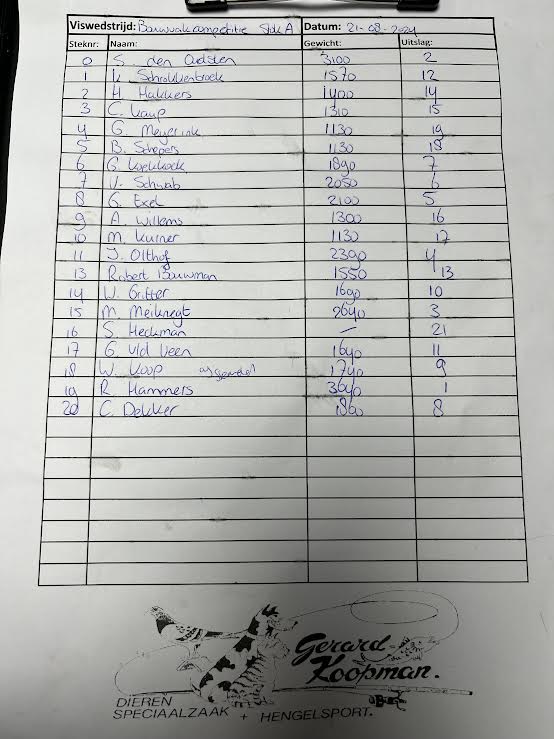 Viswedstrijd: Bouwvakcompetitie Stok A Datum: 21-08-2024
Steknr: Naam: Gewicht: Uitslag:
0 S. den Oudsten 3100 2
1 K. Schrokkenbroek 1570 12
2 H. Hakkers 1400 14
3 C. Kaup 1310 15
4 G. Meyerink 1130 19
5 B. Schepers 1130 18
6 G. Koekkoek 1890 7
7 V. Schwab 2050 6
8 G. Exel 2100 5
9 A. Willems 1300 16
10 M. Kurner 1130 17
11 J. Olthof 2390 4
13 Robert Bouwman 1550 13
14 W. Gritter 1690 10
15 M. Meiknegt 2640 3
16 S. Heckman — 21
17 G. v/d Veen 1640 11
18 W. Koop 1740 9
19 R. Hammers 3640 1
20 C. Dekker 1860 8
Gerard Koopman.
DIEREN
SPECIAALZAAK + HENGELSPORT.